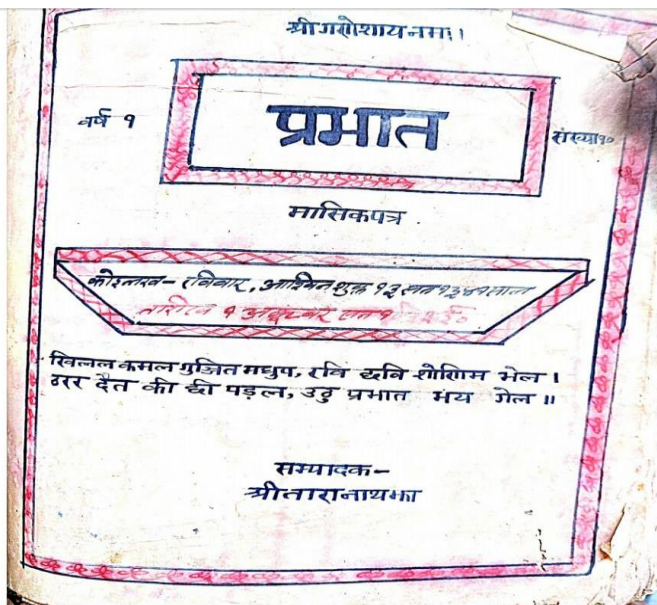 श्रीगणेशायनमः।
वर्ष १
प्रभात
संख्या१०
मासिकपत्र
कोइलख - रविवार, आश्विनशुक्ल १३ सन १३४१ साल
तारिख १ अक्टूबर सन १
खिलल कमल गुंजित मधुप, रवि छवि शोणिम भेल।
ठरर दैत की छी पड़ल, उठु प्रभात भय गेल॥
सम्पादक-
श्रीतारानाथझा